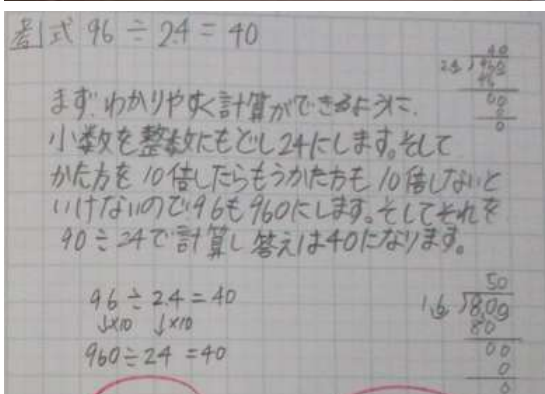 式 96÷2.4=40
40
2.4)960
96
00
0
0
まず、わかりやすく計算ができるように、
小数を整数にもどし24にします。そして
かた方を10倍したらもうかた方も10倍しないと
いけないので96も960にします。そしてそれを
90÷24で計算し答えは40になります。
96÷2.4=40
↓×10 ↓×10
960÷24=40
50
1.6)8.00
80
00
0
0